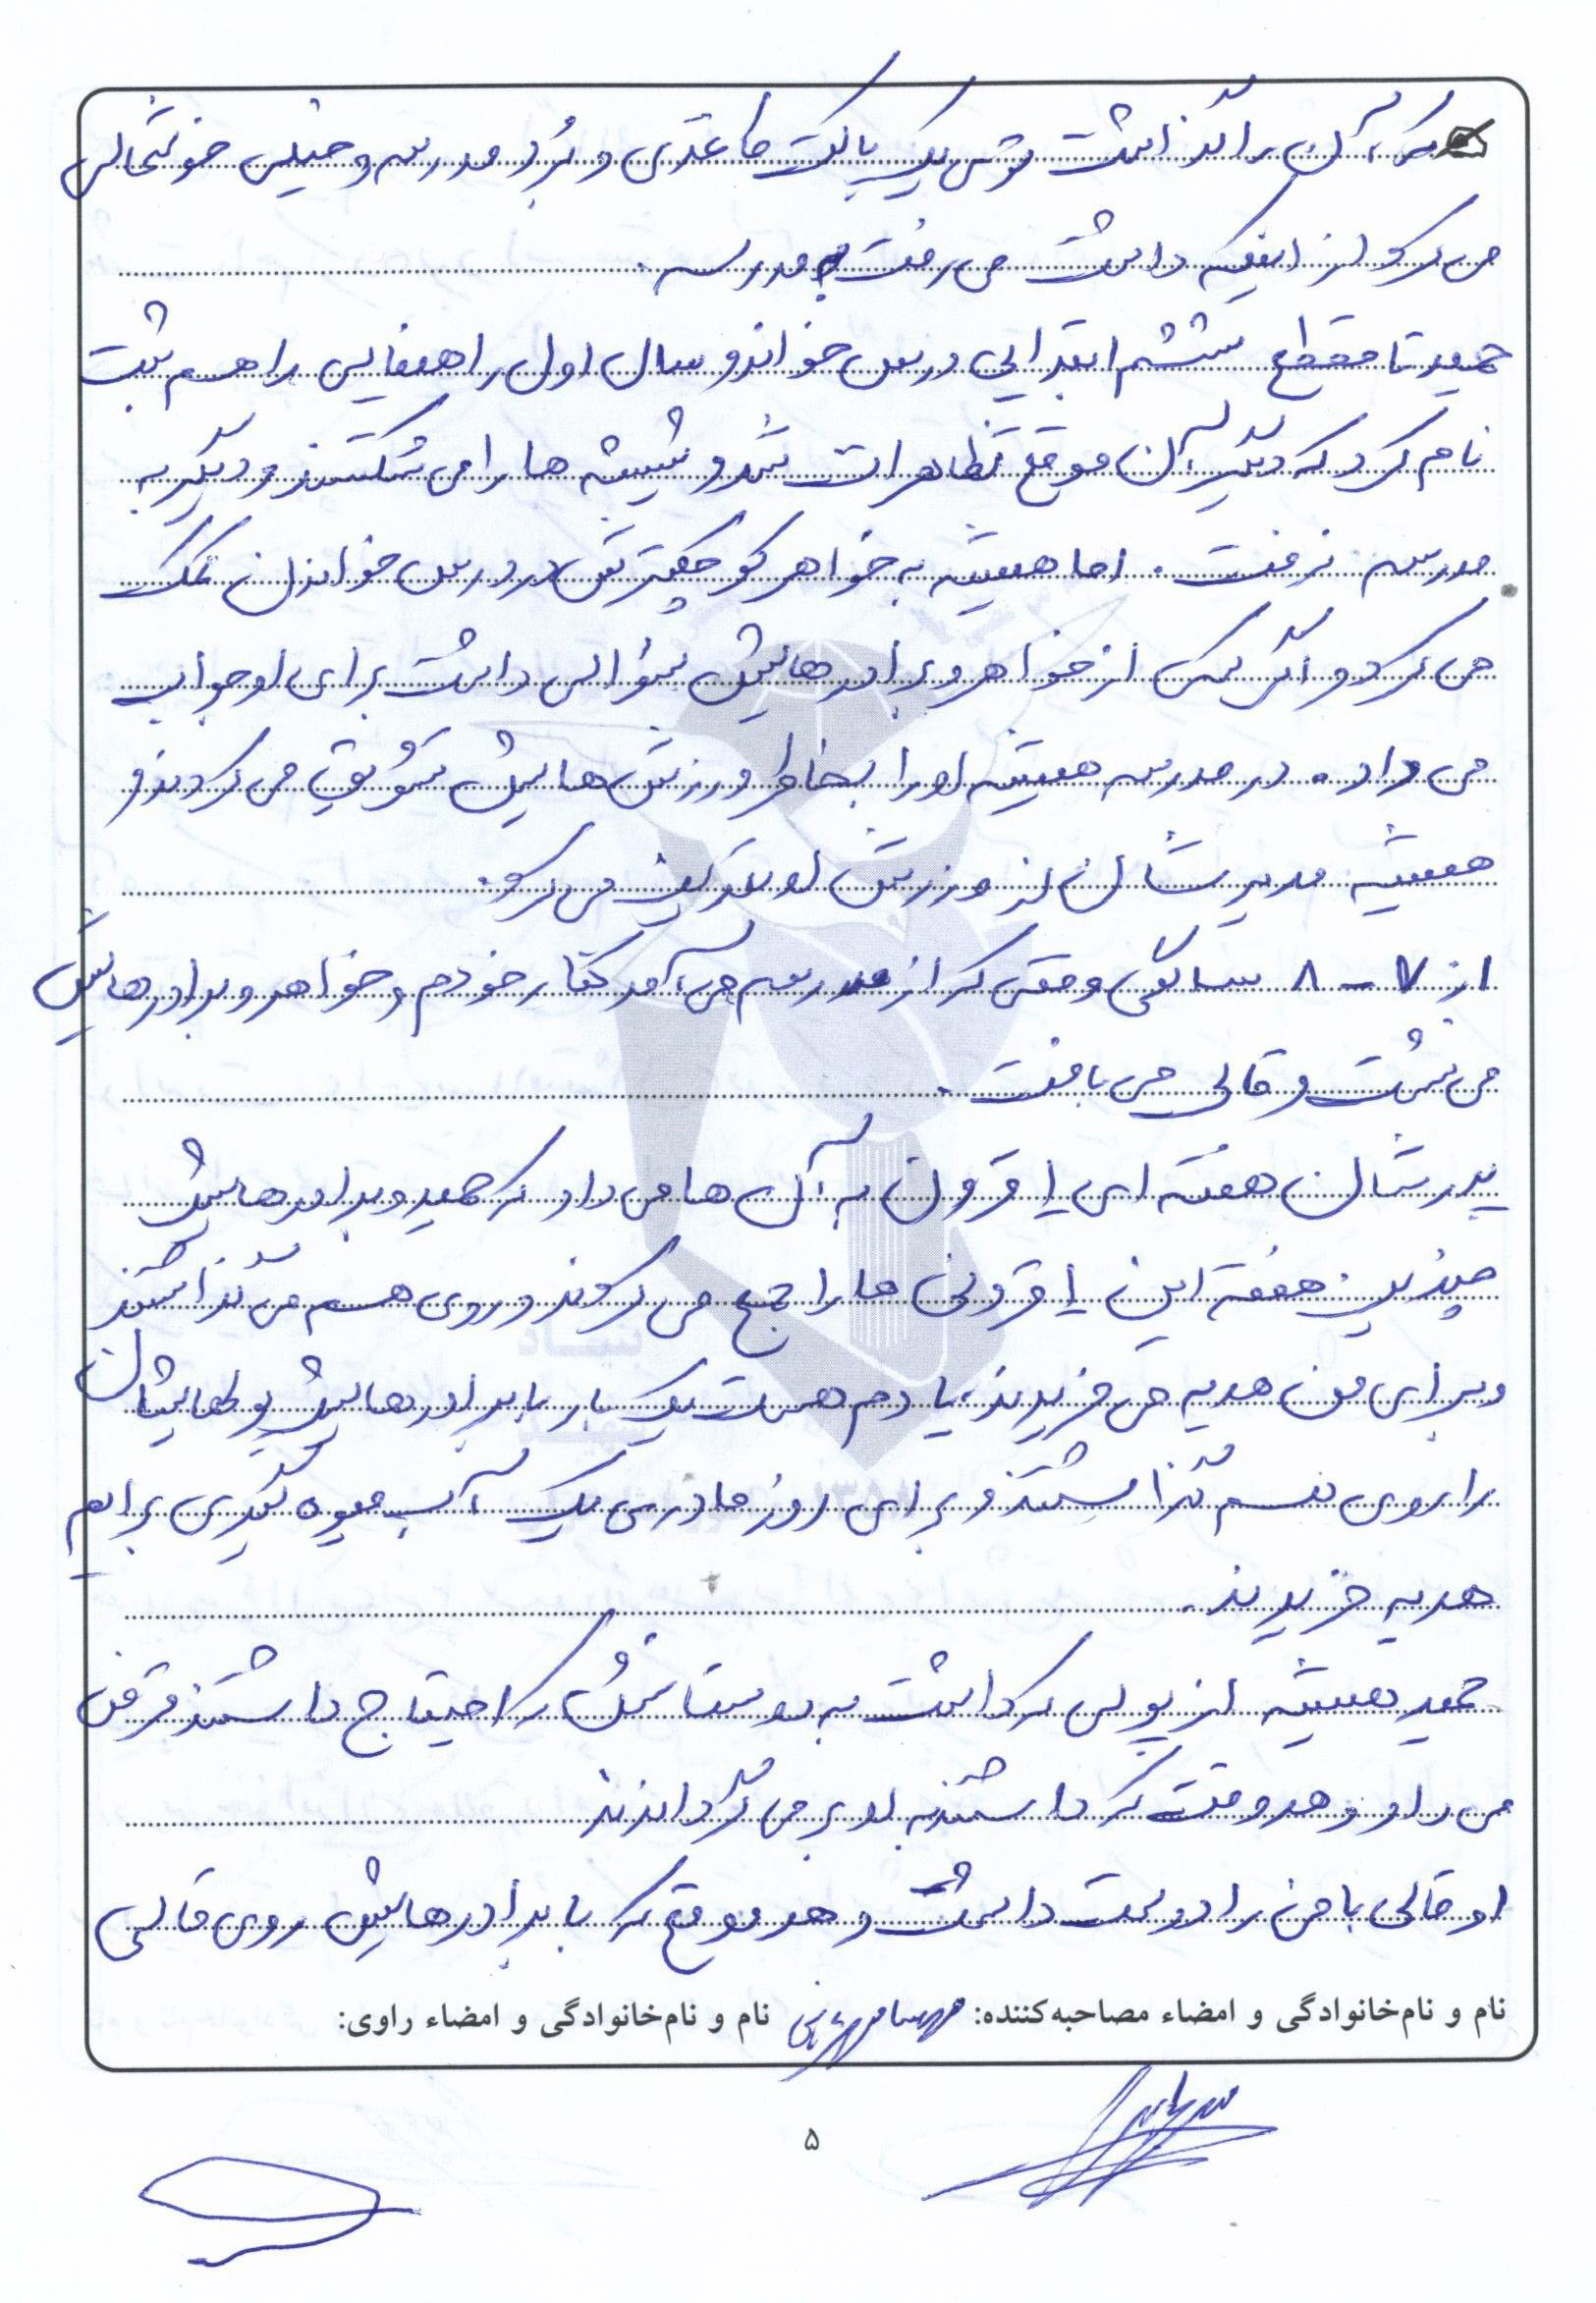 که آن را گذاشت توی یک پاکت کاغذی و بُرد مدرسه و خیلی خوشحالی
می کرد از اینکه داشت می رفت به مدرسه.
حمید تا مقطع ششم ابتدایی درس خواند و سال اول راهنمایی را هم ثبت
نام کرد که دیگر آن موقع تظاهرات شد و شیشه ها را می شکستند و دیگر به
مدرسه نرفت. اما همیشه به خواهر کوچکترش در درس خواندن کمک
می کرد و اگر کسی از خواهر و برادرهایش سؤالی داشت برای او جواب
می داد. در مدرسه همیشه او را بخاطر ورزش هایش تشویق می کردند و
همیشه مدیرشان از ورزش او تعریف می کرد.
از ۷ - ۸ سالگی وقتی که از مدرسه می آمد کنار خودم و خواهر و برادرهایش
می نشست و قالی می بافت.
پدرشان هفته ای ۱ قرون به آن ها می داد که حمید و برادرهایش
چندین هفته این ۱ قرونی ها را جمع می کردند و روی هم می گذاشتند
و برای من هدیه می خریدند، یادم هست یک بار با برادرهایش پولهایشان
را روی هم گذاشتند و برای روز مادر یک آب میوه گیری برایم
هدیه خریدند.
حمید همیشه از پولی که داشت به دوستانش که احتیاج داشتند قرض
می داد و هر وقت که داشتند به او بر می گرداندند
او قالی بافی را دوست داشت و هر موقع که با برادرهایش روی قالی
نام و نام‌خانوادگی و امضاء مصاحبه‌کننده: نام و نام‌خانوادگی و امضاء راوی:
۵